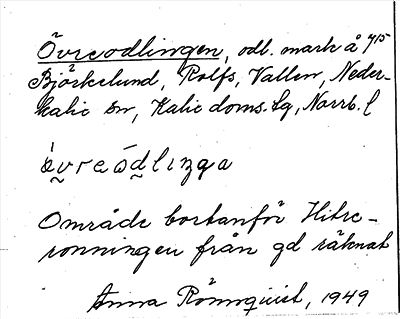 Övreodlingen, odl. mark å 4/5
Björkelund, Rolfs, Vallen, Neder-
kalix sn, Kalix doms. lg, Norrb. l
ö̀vreódlınga
Område bortanför Hitre-
ronningen från gd räknat
Anna Rönnqvist, 1949